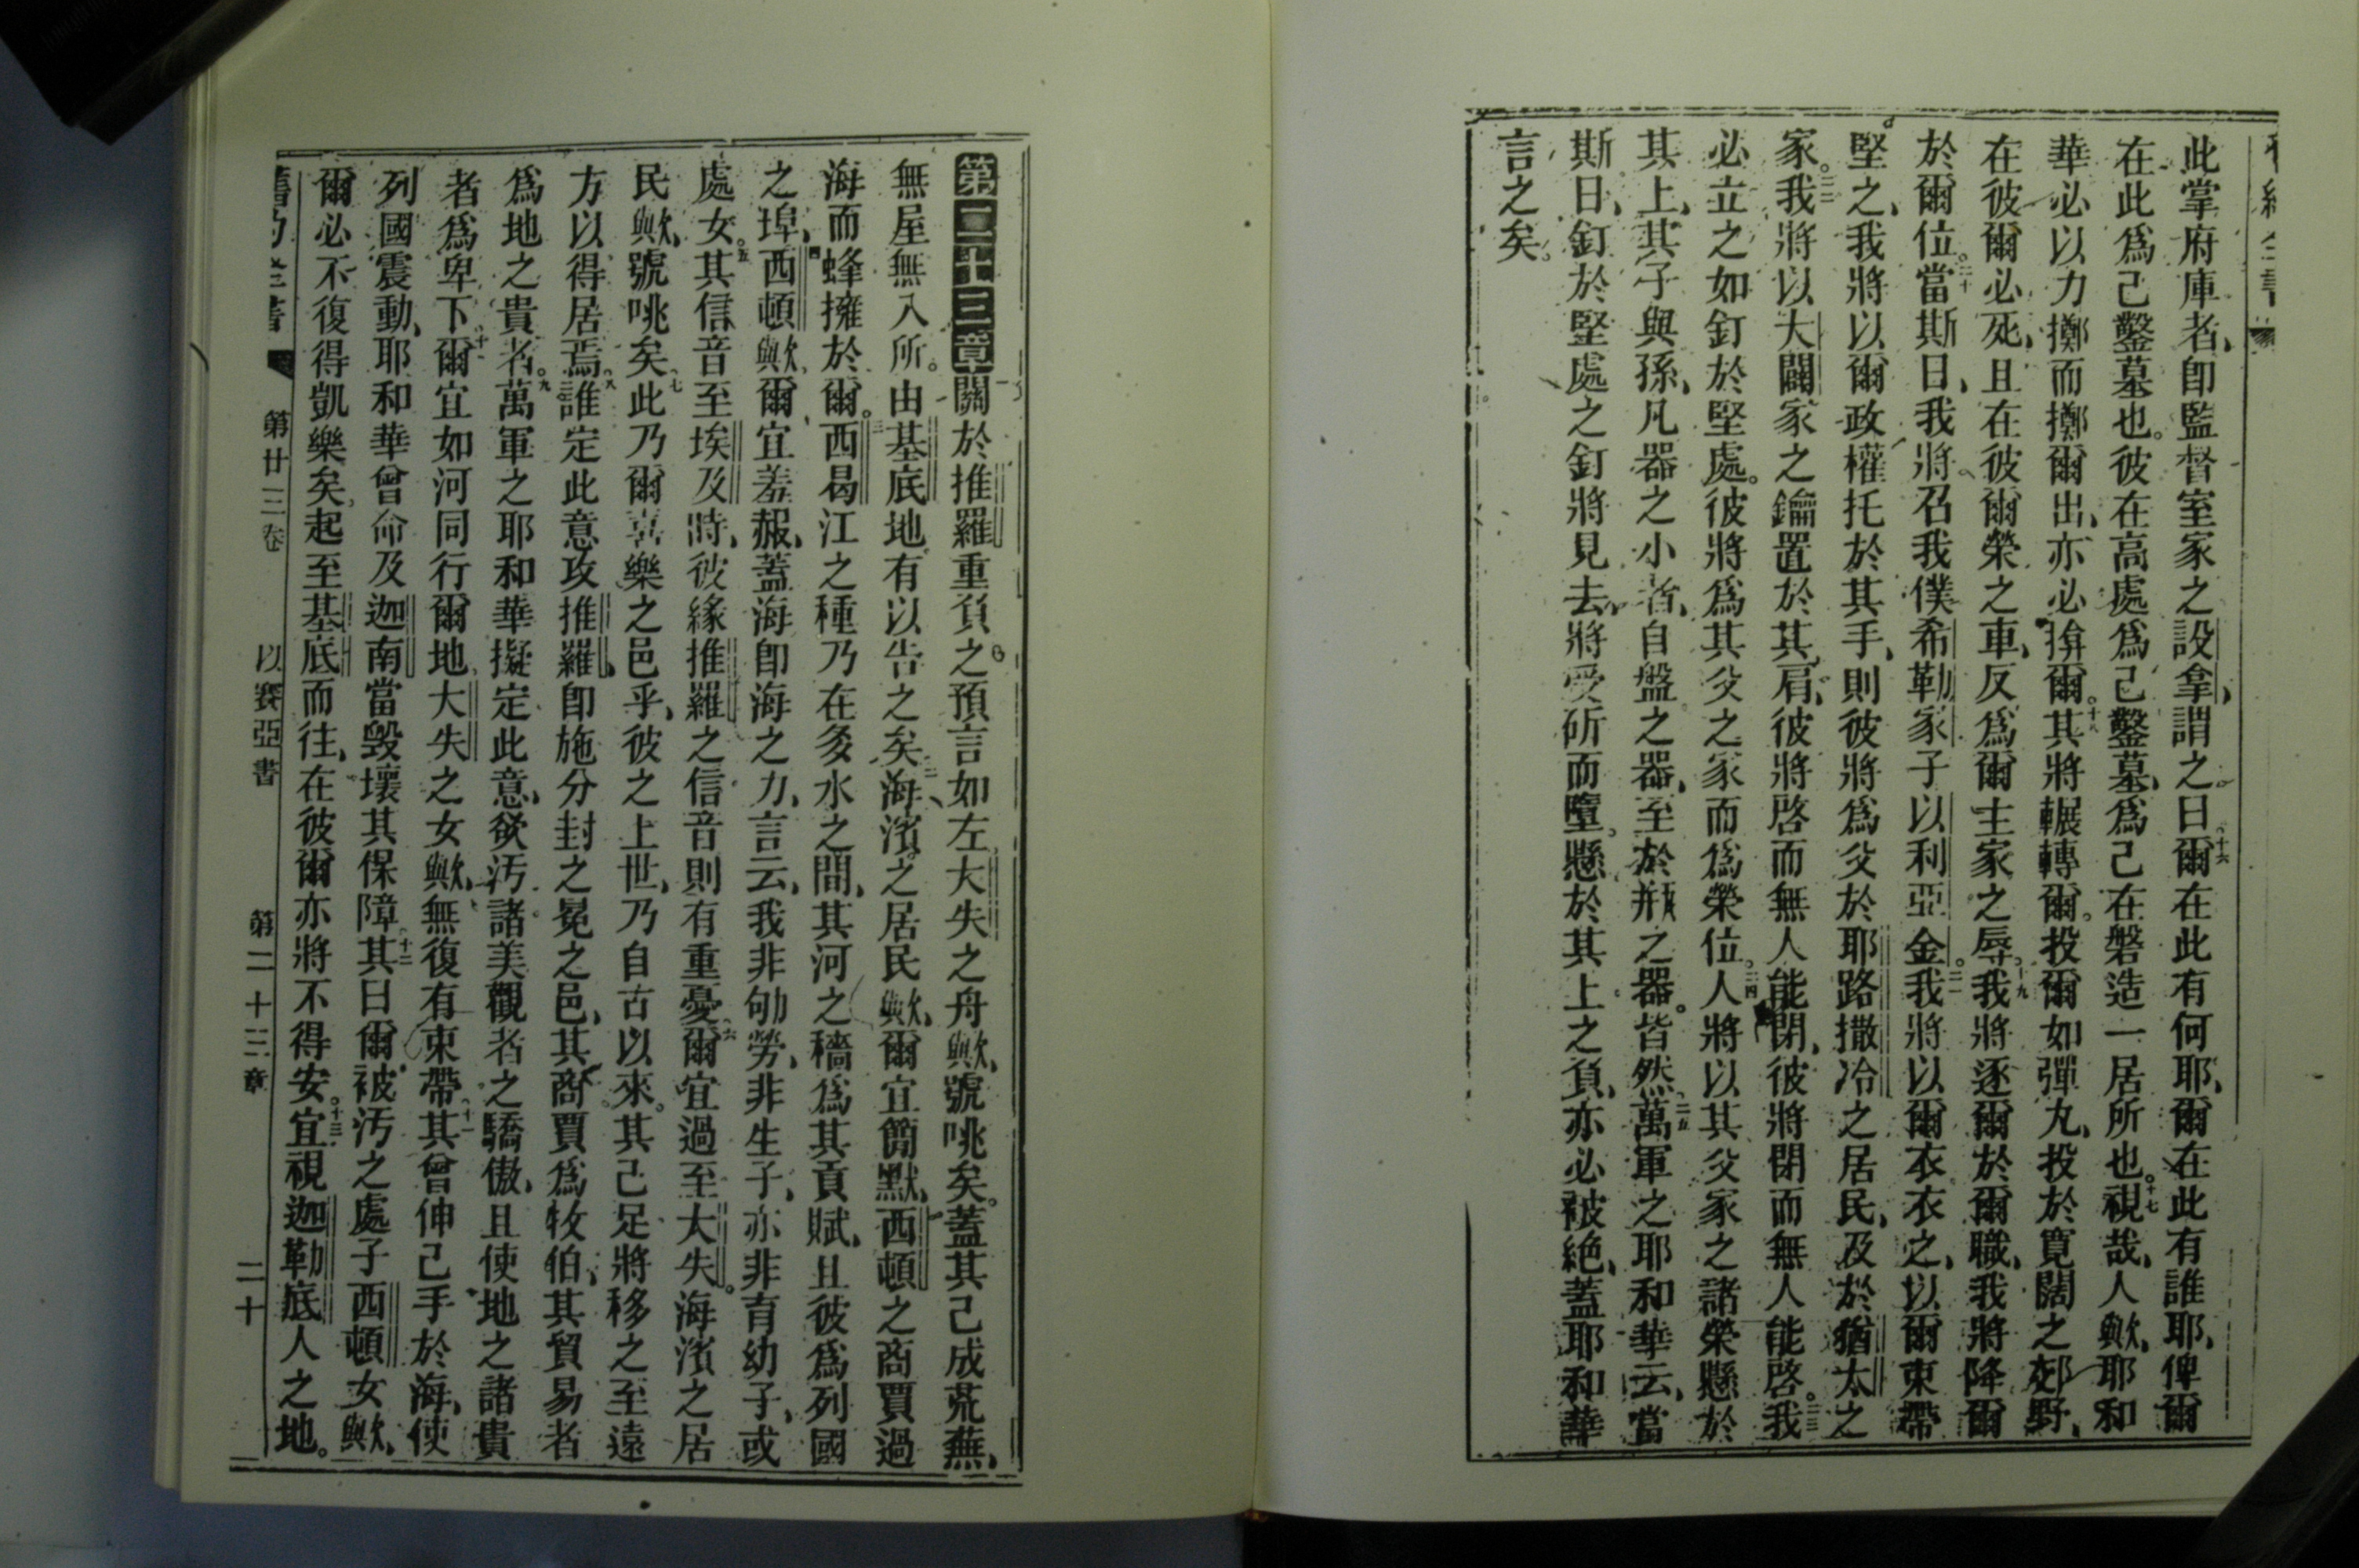 此掌府庫者、卽監督室家之設拿、謂之。曰十六爾在此有何耶、爾在此有誰耶、俾爾
在此爲己鑿墓也。彼在高處爲己鑿墓、爲己在磐造一居所也。十七視哉、人歟、耶和
華必以力擲而擲爾出、亦必揜爾。十八其將輾轉爾。投爾如彈丸、投於寬闊之郊野、
在彼爾必死、且在彼爾榮之車、反爲爾主家之辱。十九我將逐爾於爾職、我將降爾
於爾位。二十當斯日、我將召我僕希勒家子以利亞金。二一我將以爾衣衣之、以爾束帶
堅之、我將以爾政權托於其手、則彼將爲父於耶路撒冷之居民、及於猶太之
家。二二我將以大闢家之鑰置於其肩、彼將啓而無人能閉、彼將閉而無人能啓。二三我
必立之如釘於堅處。彼將爲其父之家而爲榮位。二四人將以其父家之諸榮懸於
其上、其子與孫、凡器之小者、自盤之器、至於瓶之器。皆然。二五萬軍之耶和華云、當
斯日、釘於堅處之釘將見去、將受斫而墮。懸於其上之負、亦必被絶、蓋耶和華
言之矣。
第二十三章一關於推羅重負之預言如左大失之舟歟、號咷矣。蓋其已成荒蕪、
無屋無入所。由基底地有以告之矣。二海濱之居民歟、爾宜簡默、西頓之商賈過
海而蜂擁於爾。三西曷江之種乃在多水之間、其河之穡爲其貢賦、且彼爲列國
之埠、四西頓歟、爾宜羞赧、蓋海卽海之力、言云、我非劬勞、非生子、亦非育幼子、或
處女。五其信音至埃及時、彼緣推羅之信音則有重憂。六爾宜過至大失。海濱之居
民歟、號咷矣。七此乃爾喜樂之邑乎、彼之上世、乃自古以來。其己足將移之至遠
方以得居焉。八誰定此意攻推羅、卽施分封之冕之邑、其商賈爲牧伯、其貿易者
爲地之貴者。九萬軍之耶和華擬定此意、欲汚諸美觀者之驕傲、且使地之諸貴
者爲卑下。十爾宜如河同行爾地、大失之女歟、無復有束帶。十一其曾伸己手於海、使
列國震動、耶和華曾命及迦南當毀壞其保障。十二其曰爾被汚之處子西頓女歟、
爾必不復得凱樂矣。起至基底而往、在彼爾亦將不得安。十三宜視迦勒底人之地。
第廿三卷 以賽亞書 第二十三章 二十